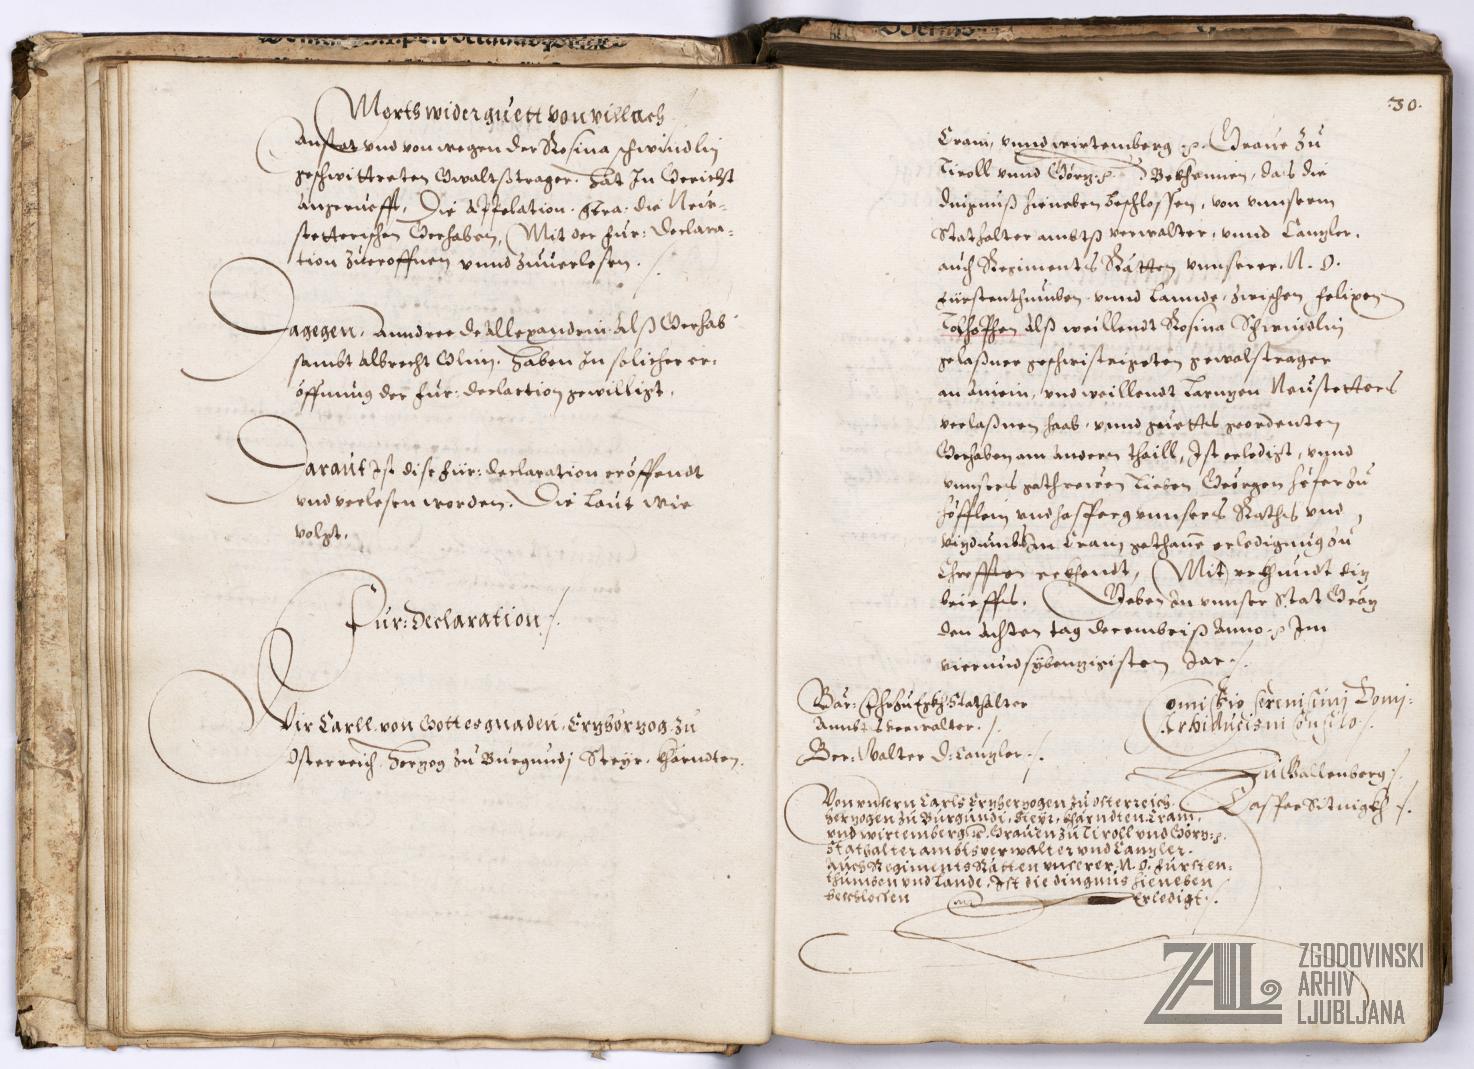 Morths widerguett von villach
Anstat vnd von wegen der Rosina schwindlin
geschwittreten Gwaltßtrager. Hat In Gericht
Angeruefft, Die Appelation. gtra. die Neu-
stetterischen Gerhaben, Mit der Für: Declara-
tion zueroffnen vnnd zuuerlesen.
Dagegen. Anndree de Allexandrin Alß Gerhab
sambt Albrecht Haben In solicher er-
öffnung der für: declartion gewilligt.
Darauf Ist dise für: declaration eröffendt
vnd verlesen worden. Die Laut wie
volgt.
Für: Declaration.
Wir Carll von Gottes gnaden. Ertzhörtzog zu
Österreich. Hertzog zu Burgundj Steyr. Kharndten.
30.
Crain, vnnd wirtemberg p. Graue zu
Tiroll vnnd Görtz p. Bekhennen, das die
dingnuß hieneben beschlossen, von vnnserm
Stathalter ambtß verwalter, vnnd Cantzler.
auch Regiments Rätten vnnserer. N. Ö.
fürstenthumben vnnd Lannde, zwischen Felixen
Tolhopffen Alß weillendt Rosina Schwindlin
gelaßner geschwistrigeten gewalstrager
an ainem, vnd weillendt Neustetters
verlaßnen haab. vnnd guetts geordenten
Gerhaben am andern thaill, Ist erledigt, vnnd
vnnsers gethreuen Lieben Geörgen Höfer zu
Höfflein vnd hasperg vnnsers Raths vnd
vitzdumbs In Crain gethane erledigung zu
Chrefften erkhendt, Mit vrkhundt ditz
brieffs. Geben In vnnser Stat Grätz
den Achten tag decembris Anno p Im
viervndsybentzigisten Jar.
Stathalter
Ambts verwalter.
Ber: Walter D: Cantzler.
Comissio serenissimj Domj:
Archiducis in Consilio.
Wallenberg.
Casper
Von vnsern Carls Ertzhertzogen zu Osterreich.
hertzogen zu Burgundi, Steyr, Kharndten Crain,
vnd wirtemberg p. Grauen zu Tiroll vnd Görtz p.
Stathalter ambts verwalter vnd Cantzler.
Auch Regiments Rätten vnserer. N. Ö. Fürsten-
thumben vnd Lande. Ist die dingnus hieneben
beschlossen Erledigt.
ZAL ZGODOVINSKI
ARHIV
LJUBLJANA